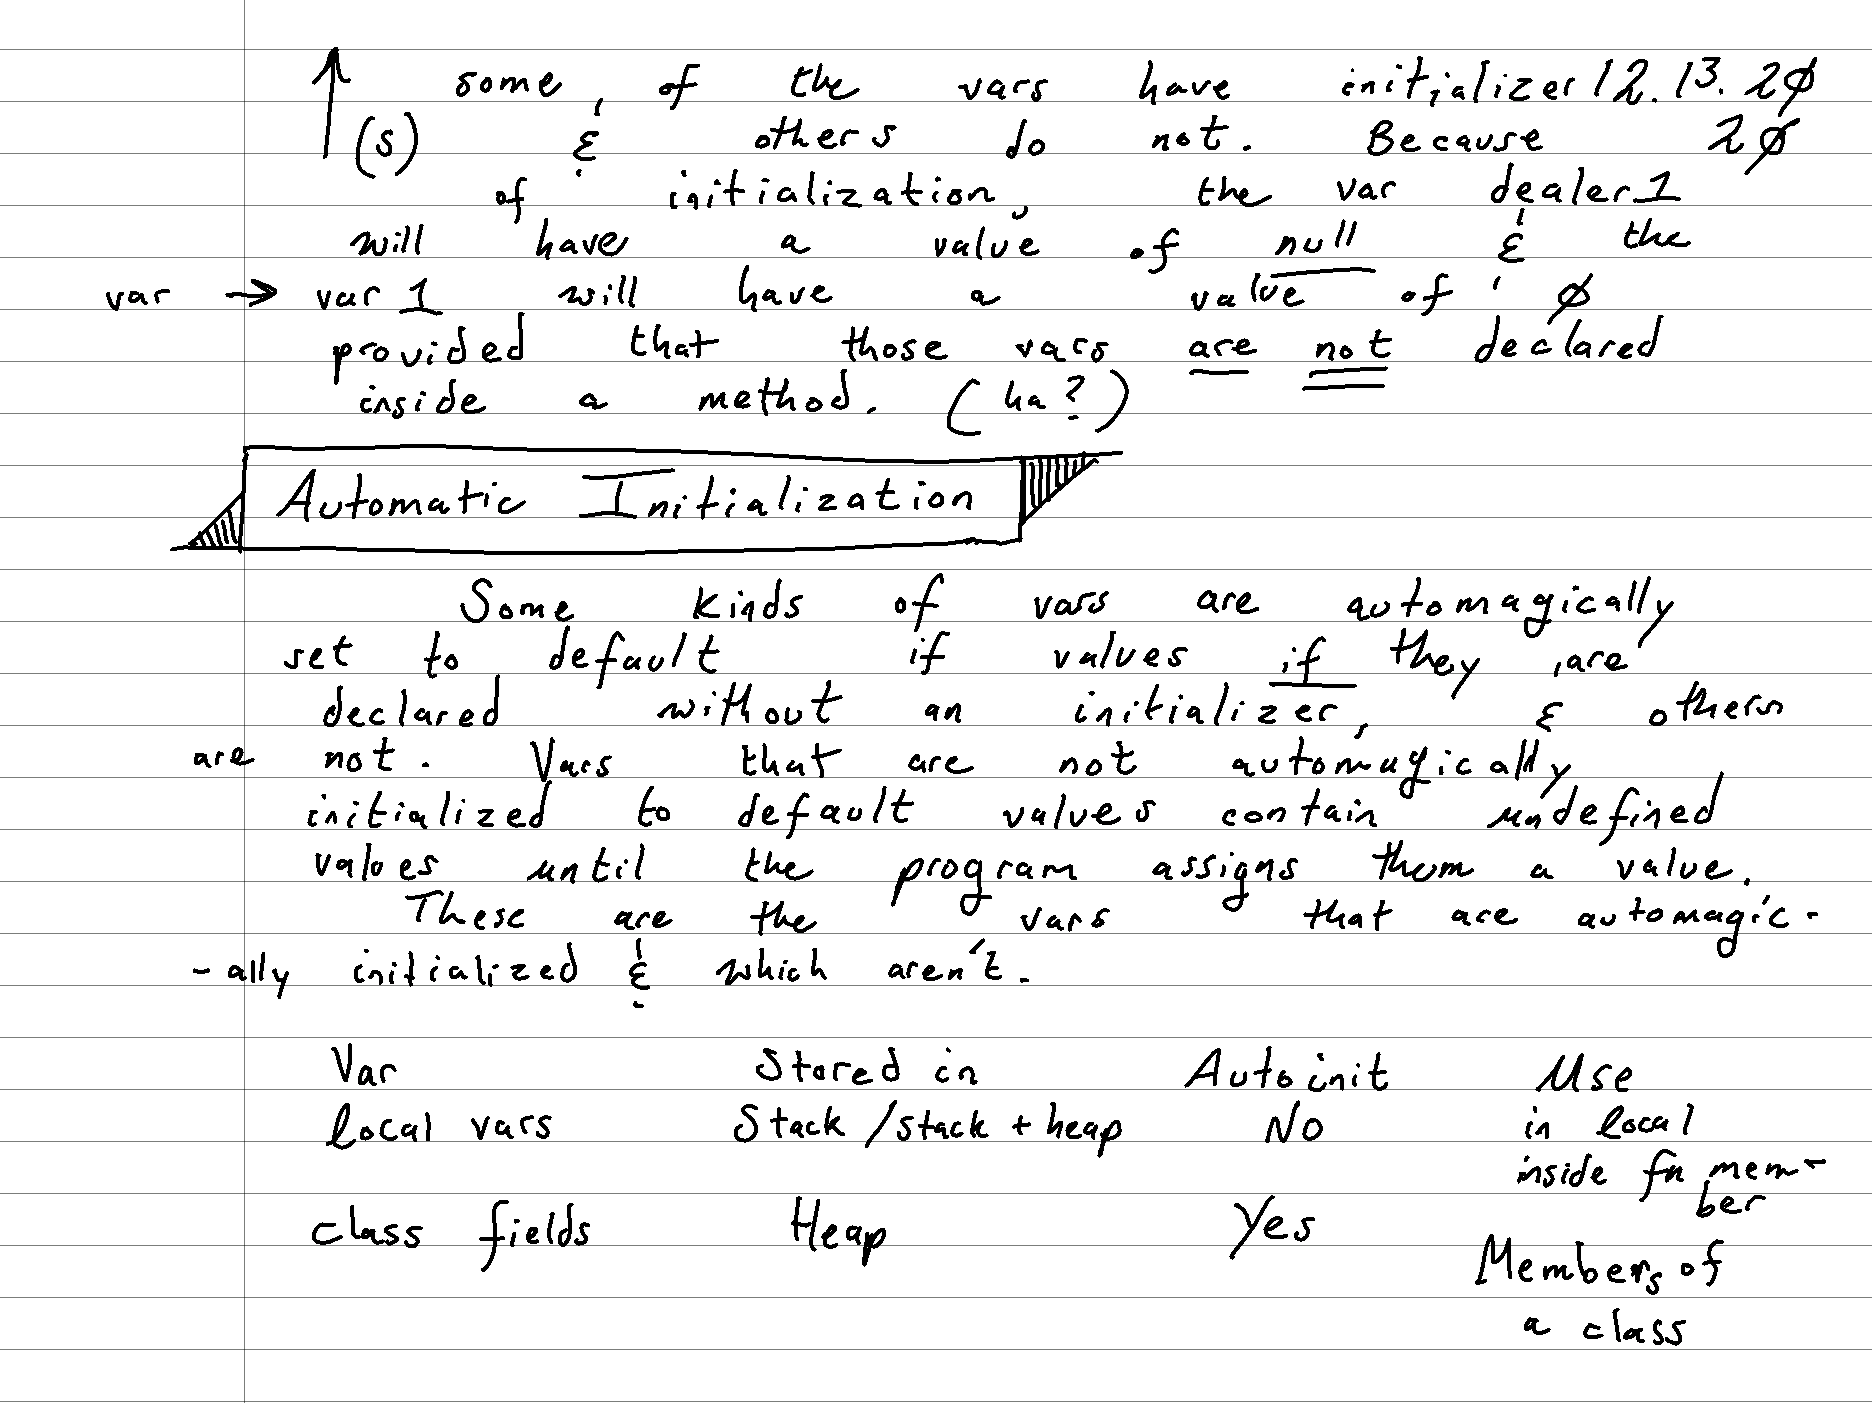 some of the vars have initializer 12.13.2∅
(s) & others do not. Because 2∅
of initialization, the var dealer1
will have a value of null & the
var → var 1 will have a value of ∅
provided that those vars are not declared
inside a method. (ha?)
Automatic Initialization
Some kinds of vars are automagically
set to default if values if they are
declared without an initializer, & others
are not. Vars that are not automagically
initialized to default values contain undefined
values until the program assigns them a value.
These are the vars that are automagic-
-ally initialized & which aren't.
Var Stored in Autoinit Use
local vars Stack/stack + heap No in local
inside fn mem-
ber
class fields Heap Yes
Members of
a class